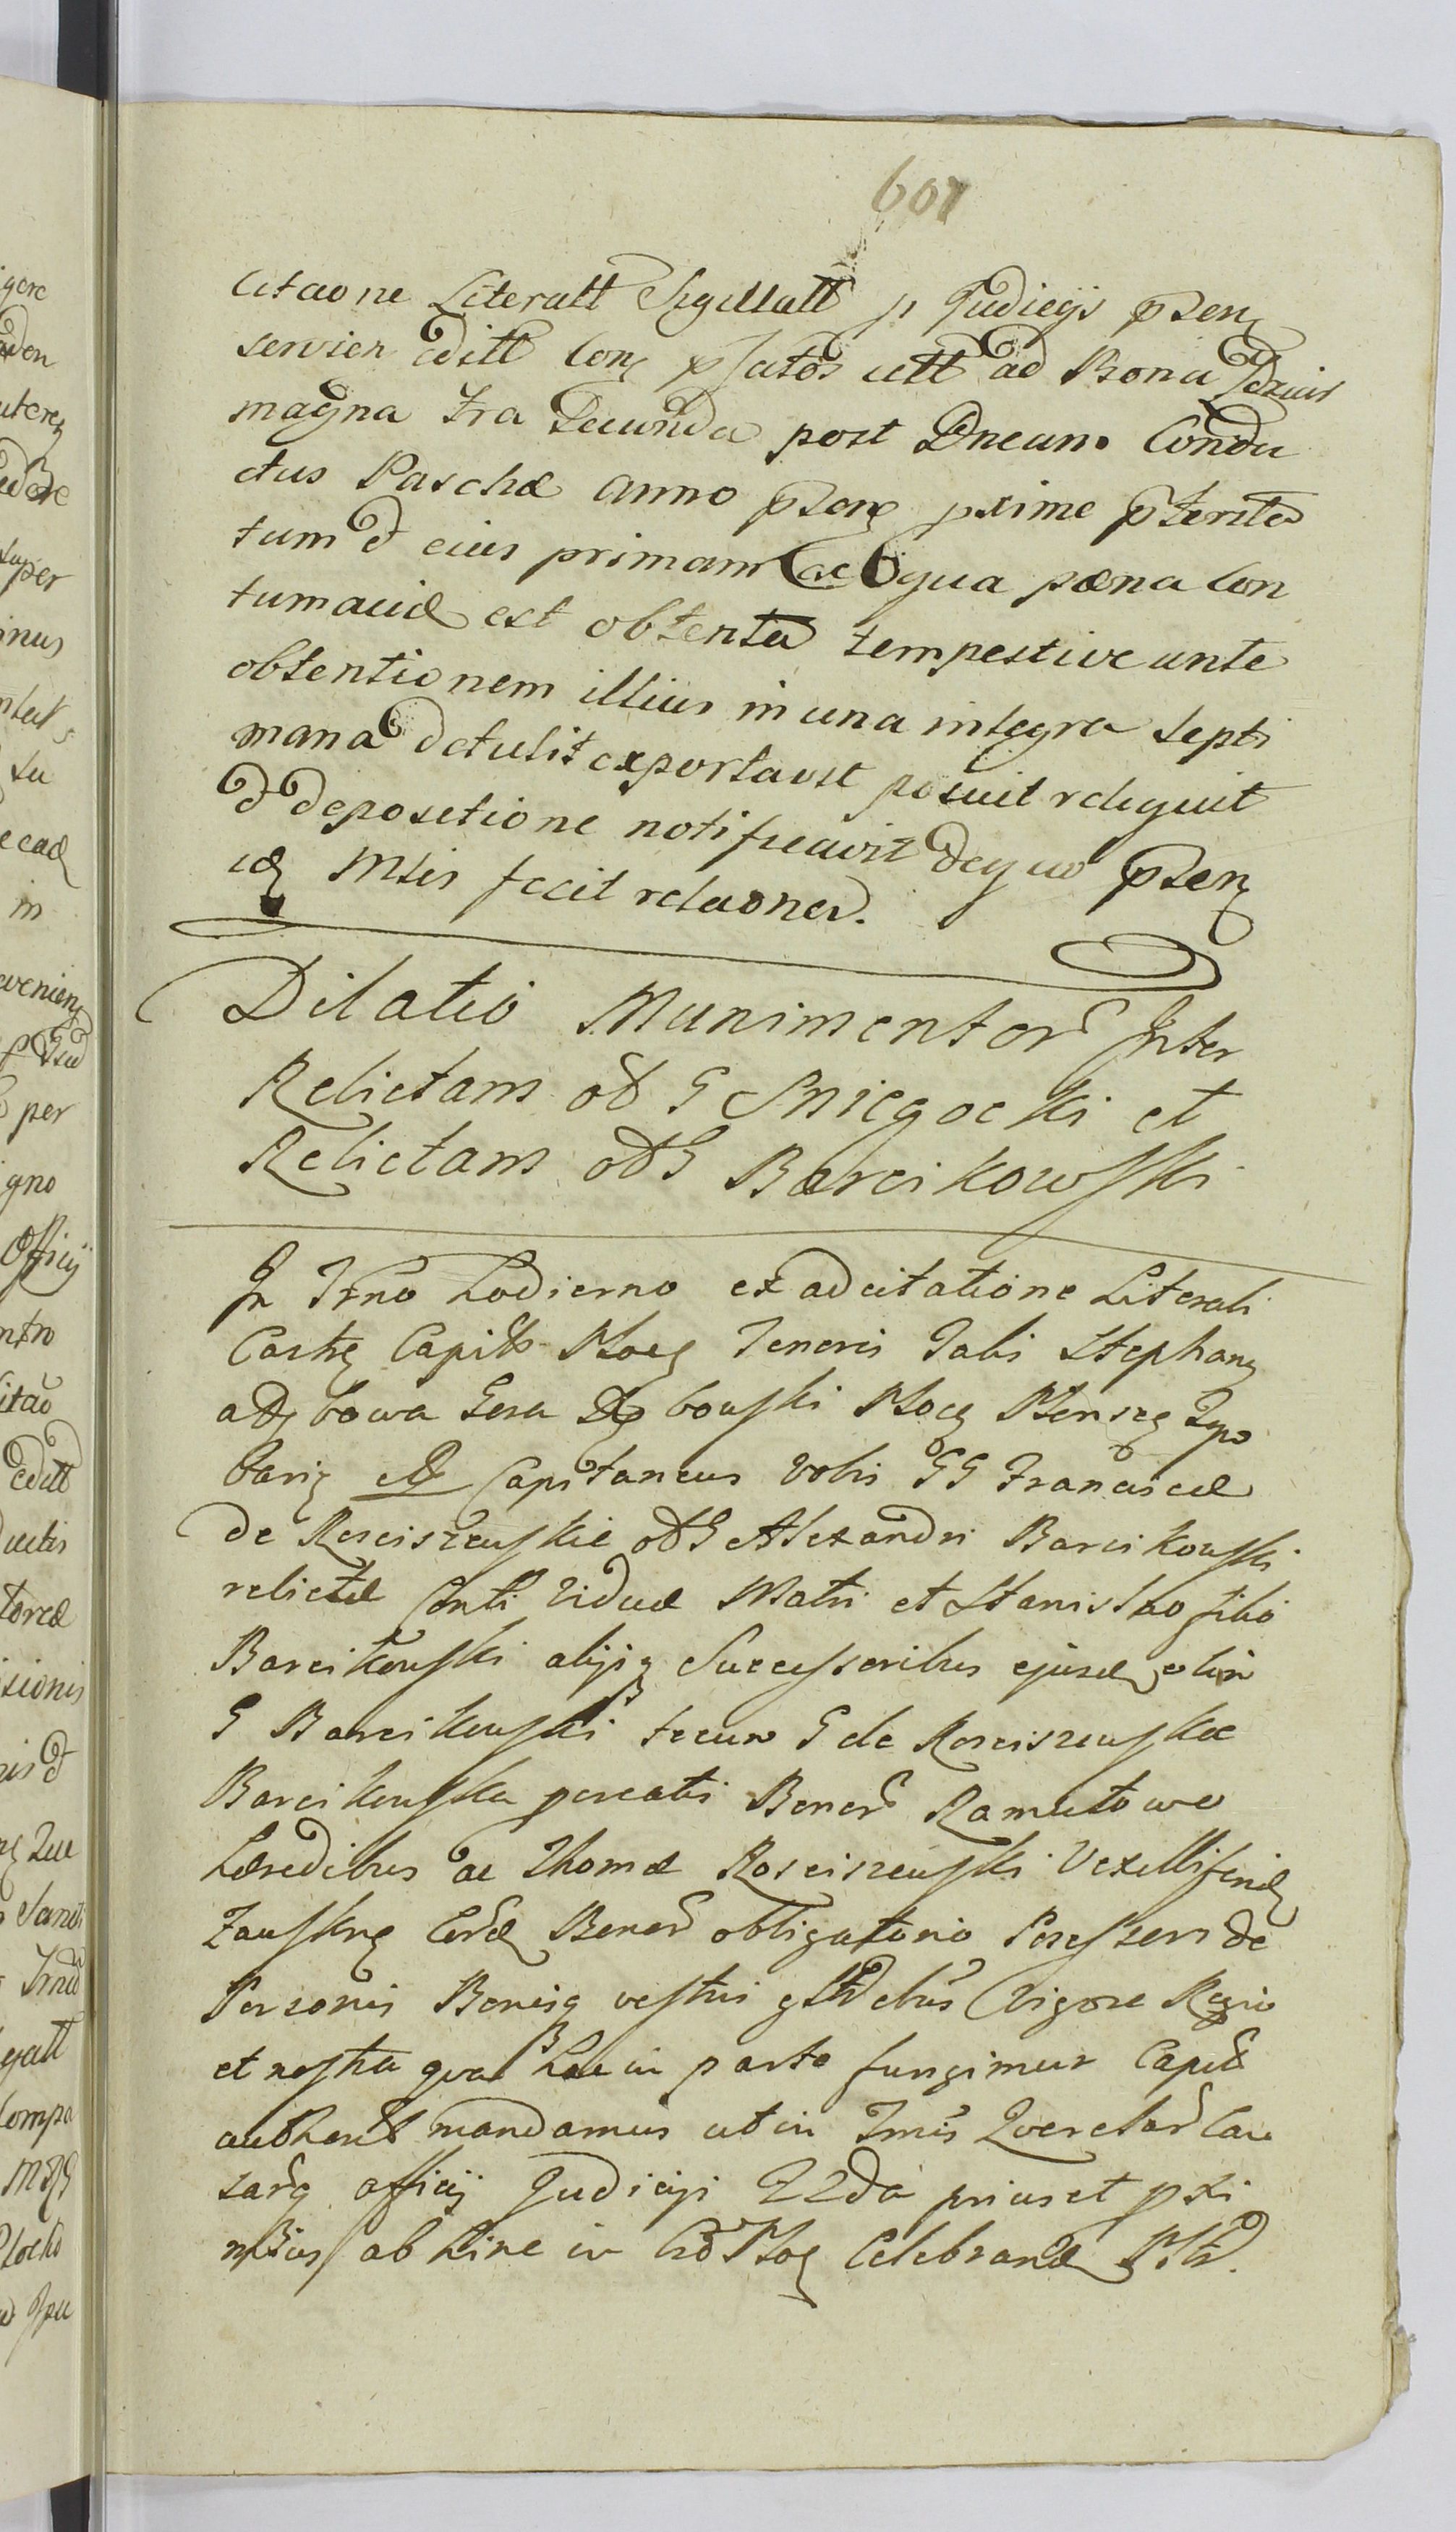 607
citaone Literall Sigillatt p Judicys psen
servien editt Con pfatos utt ad Bona
magna fra Secunda post Dncam Condu
ctus Paschæ anno psen pxime pterita
tum d eius primam ac qua pæna Con
tumaciæ est obtenta tempestive ante
obtentionem illius in una integra Septi
mana detulit exportavit posuit reliquit
d depositione notificavit deq uo psen
id Mtis fecit relaonem.
Dilatio Munimentor Inter
Relictam od G Sniegocki et
Relictam od G Barcikowski
In Trno hodierno ex adcitatione Literali
Castr Capitt Ploc Tenoris Talis Stephan
a bowa Gera bowski Ploc
bari Capitaneus Vobis GG Franciscæ
de Rosciszewskie od G Alexandri Barcikowski
relictæ Conti Viduæ Matri et Stanislao filio
Barcikowski alijsq Successoribus ejusd olim
G Barcikowski tecum G de Rosciszewskie
Barcikowska procatis Bonor Ramutowo
hæredibus ac Thomæ Rosciszewski Vexillifer
Zauskr Cord Bonor obligatorio Possessori de
Personis Bonisq vestris Vigore Regia
et nostra qua hac in parte fungimur Capit
authorit mandamus ut in Tmis Querelar Cau
sarq officij Judicij 22da prius et pxi
mius ab hinc in Cro Ploc Celebrand